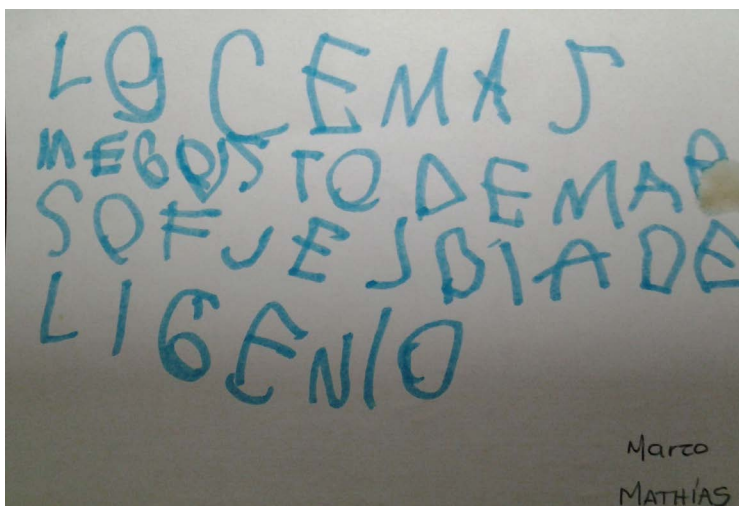 LO CEMAS
MEGUSTO DEMAR
SOFUE JBIADE
LIGENIO
Marzo
MATHÍAS